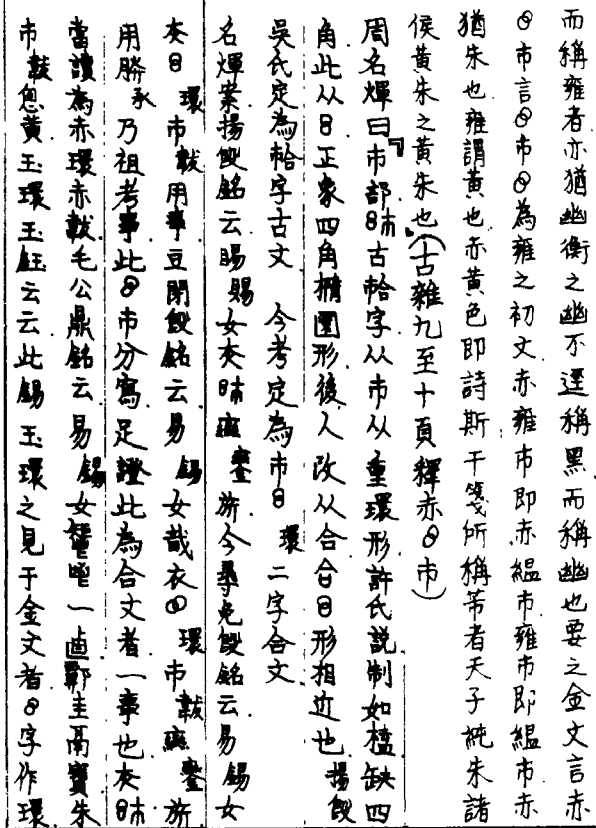 而稱雍者亦猶幽衡之幽不逕稱黑而稱幽也要之金文言赤
市言市為雍之初文赤雍市即赤縕市雍市即縕市赤
猶朱也雍謂黃也赤黃色即詩斯干箋所稱芾者天子純朱諸
侯黃朱之黃朱也（古雜九至十頁釋赤市）
周名煇曰『市部古韐字从市从重環形許氏說制如榼缺四
角此从正象四角橢圜形後人改从合合形相近也揚𣪘
吳氏定為韐字古文 今考定為市環二字合文
名煇案揚𣪘銘云賜賜女赤鑾旂今尋免𣪘銘云易錫女
赤環市韍用事豆閉𣪘銘云易錫女戠衣環市韍鑾旂
用賸乃祖考事此市分寫足證此為合文者一事也赤
當讀為赤環赤韍毛公鼎銘云易錫女一卣圭鬲寶朱
市韍悤黃玉環玉云云此錫玉環之見于金文者字作環